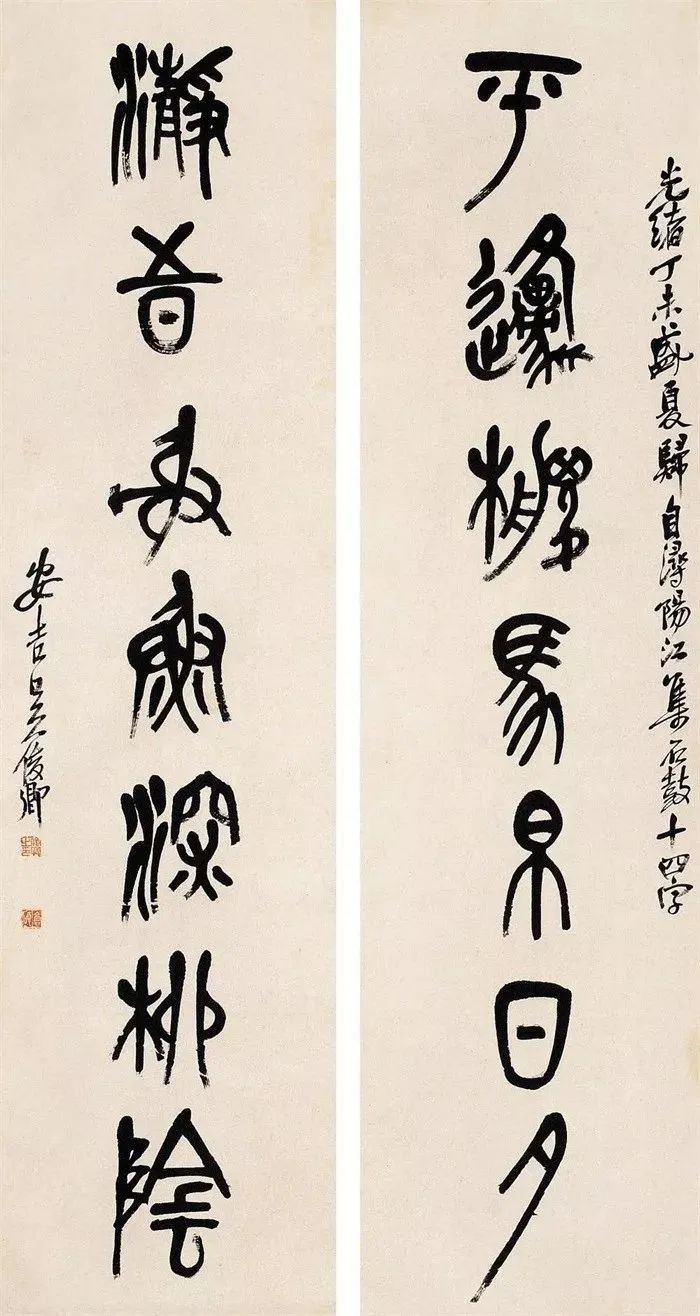 光緒丁未盛夏歸自潯陽江集石鼓十四字
平邍馬日夕
瀞吾深柳陰
安吉吳俊卿